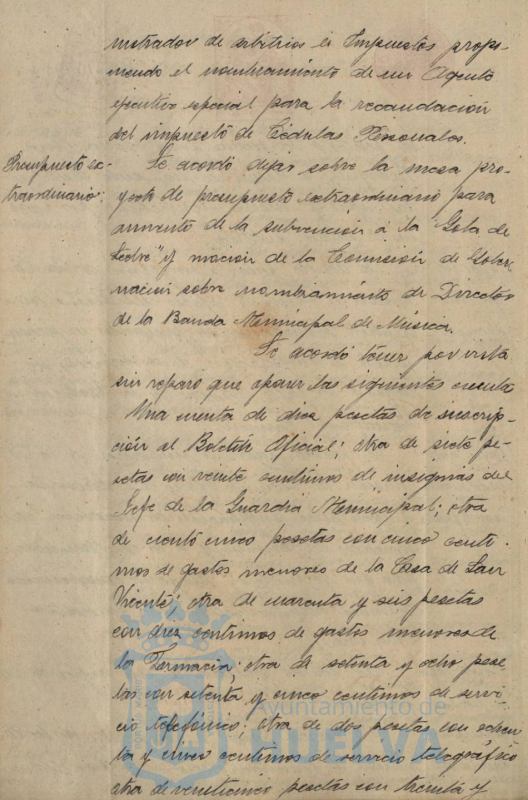 nistrador de arbitrios é Impuestos propo-
niendo el nombramiento de un Agente
ejecutivo especial para la recaudación
del impuesto de Cédulas Personales.
Presupuesto ex-
traordinario:
Se acordó dejar sobre la mesa pro-
yecto de presupuesto extraordinario para
aumento de la subvención á la "Gota de
Leche" y moción de la Comisión de Gober
nación sobre nombramiento de Director
de la Banda Municipal de Música.
Se acordó tener por vista
sin reparo que oponer las siguientes cuenta
Una cuenta de diez pesetas de suscrip-
ción al Boletín Oficial; otra de siete pe-
setas con veinte centimos de insignias del
Jefe de la Guardia Municipal; otra
de ciento cinco pesetas con cinco centi-
mos de gastos menores de la Casa de San
Vicente; otra de cuarenta y seis pesetas
con diez centimos de gastos menores de
la Farmacia; otra de setenta y ocho pese
tas con setenta y cinco centimos de servi-
cio telefónico; otra de dos pesetas con ochen
ta y cinco centimos de servicio telegráfico
otra de veinticinco pesetas con treinta y
Ayuntamiento de
HUELVA